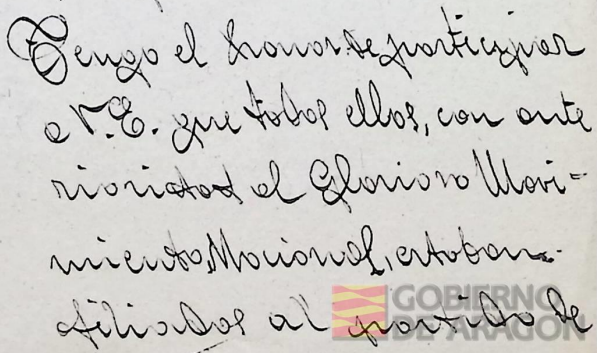 Tengo el honor de participar
a V.E. que todos ellos, con ante
rioridad al Glorioso Movi=
miento Nacional, estaban
afiliados al partido de
GOBIERNO
DE ARAGON